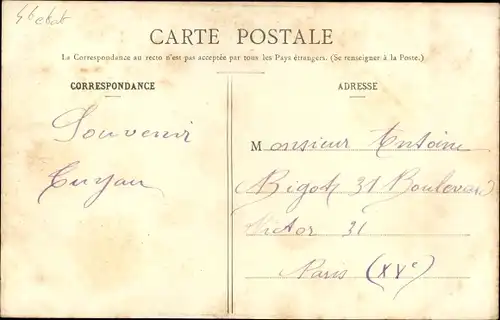 CARTE POSTALE
La Correspondance au recto n'est pas acceptée par tous les Pays étrangers. (Se renseigner à la Poste.)
CORRESPONDANCE
Souvenir
ADRESSE
Monsieur Antoine
31 Boulevard
Victor 31
Paris (XVe)